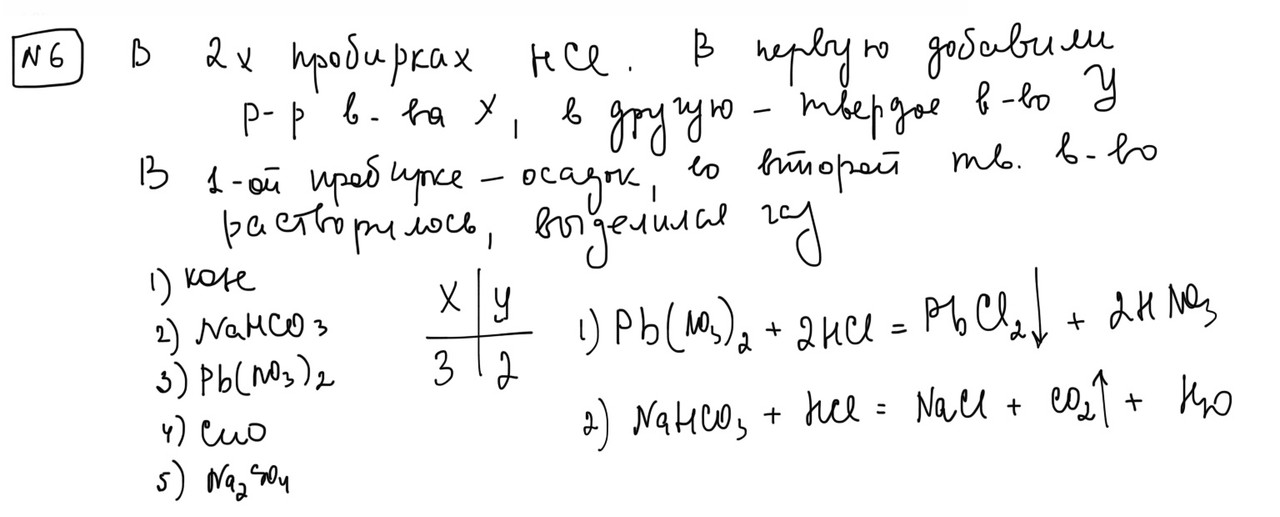 №6 В 2х пробирках HCl. В первую добавили
р-р в-ва X, в другую – твердое в-во Y
В 1-ой пробирке – осадок, во второй тв. в-во
растворилось, выделился газ
1) KOH
2) NaHCO3
3) Pb(NO3)2
4) CuO
5) Na2SO4
X | Y
3 | 2
1) Pb(NO3)2 + 2HCl = PbCl2↓ + 2HNO3
2) NaHCO3 + HCl = NaCl + CO2↑ + H2O